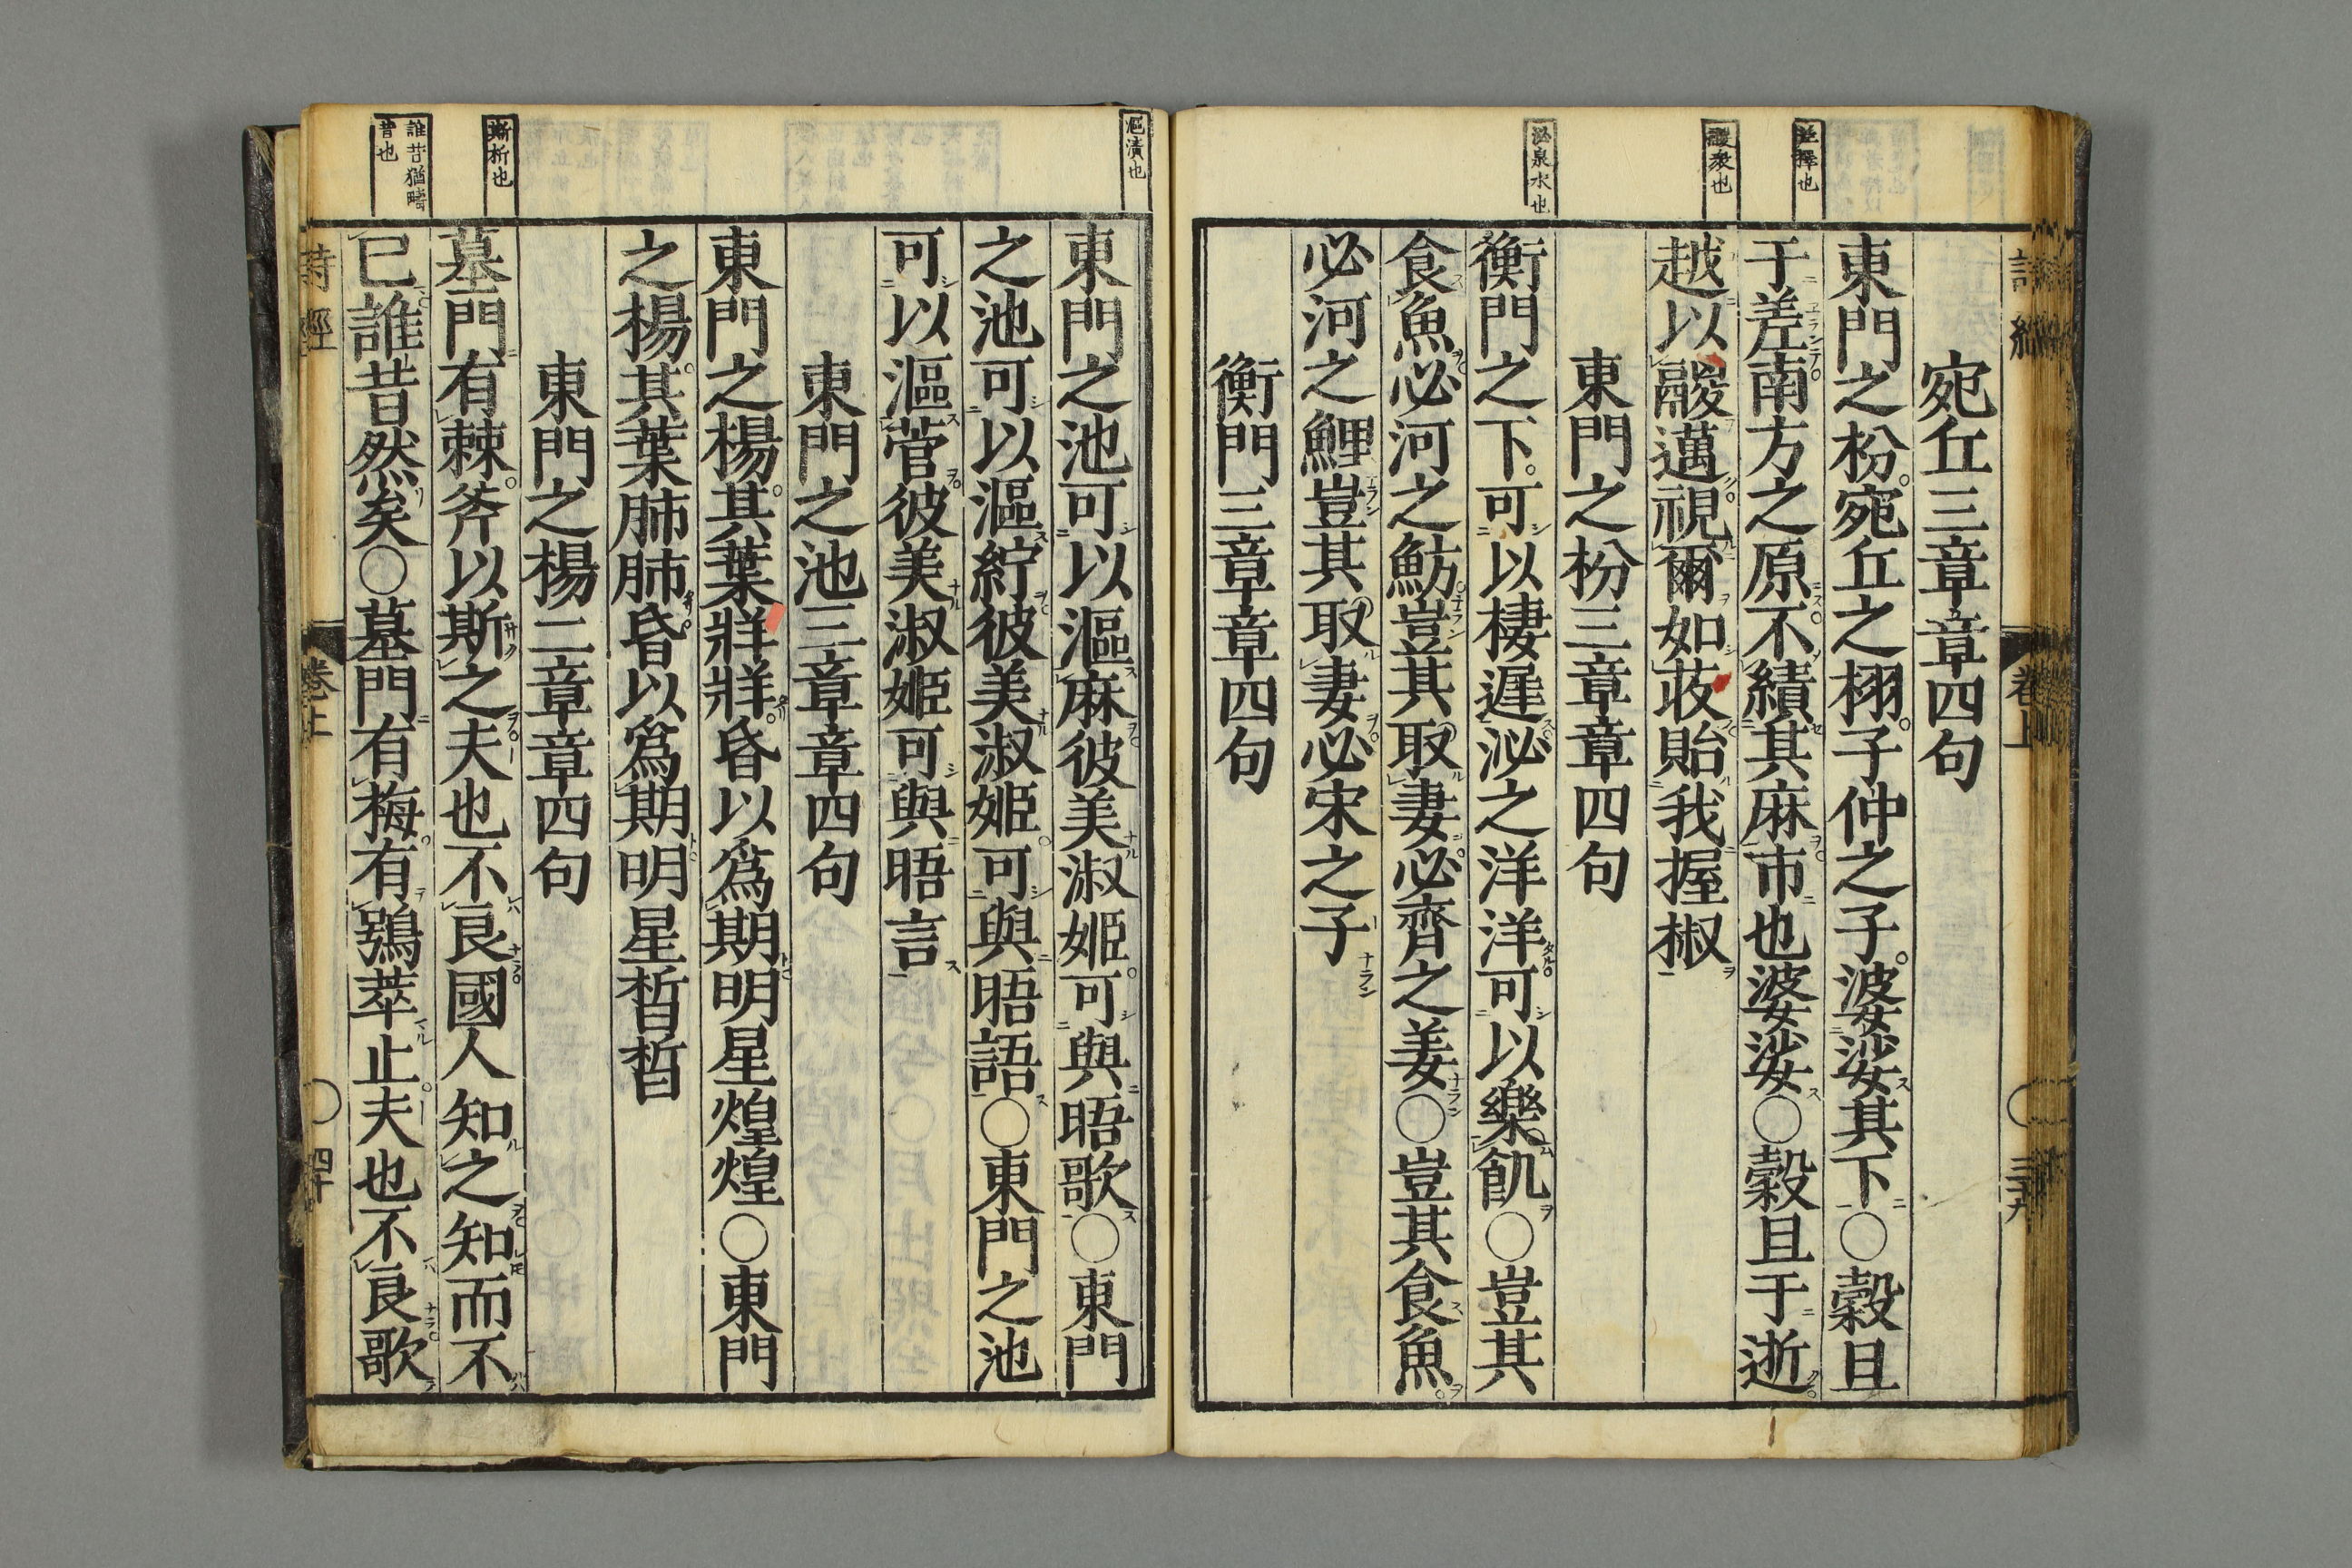 差擇也
鬷衆也
泌泉水也
宛丘三章章四句
東門之枌宛丘之栩子仲之子婆娑其下○穀且
于差南方之原不績其麻市也婆娑○穀且于逝
越以鬷邁視爾如荍貽我握椒
東門之枌三章章四句
衡門之下可以棲遲泌之洋洋可以樂飢○豈其
食魚必河之魴豈其取妻必齊之姜○豈其食魚
必河之鯉豈其取妻必宋之子
衡門三章章四句
漚漬也
斯析也
誰昔猶疇
昔也
東門之池可以漚麻彼美淑姬可與晤歌○東門
之池可以漚紵彼美淑姬可與晤語○東門之池
可以漚菅彼美淑姬可與晤言
東門之池三章章四句
東門之楊其葉牂牂昏以爲期明星煌煌○東門
之楊其葉肺肺昏以爲期明星晢晢
東門之楊二章章四句
墓門有棘斧以斯之夫也不良國人知之知而不
已誰昔然矣○墓門有梅有鴞萃止夫也不良歌
詩經 卷上 ○ 四十